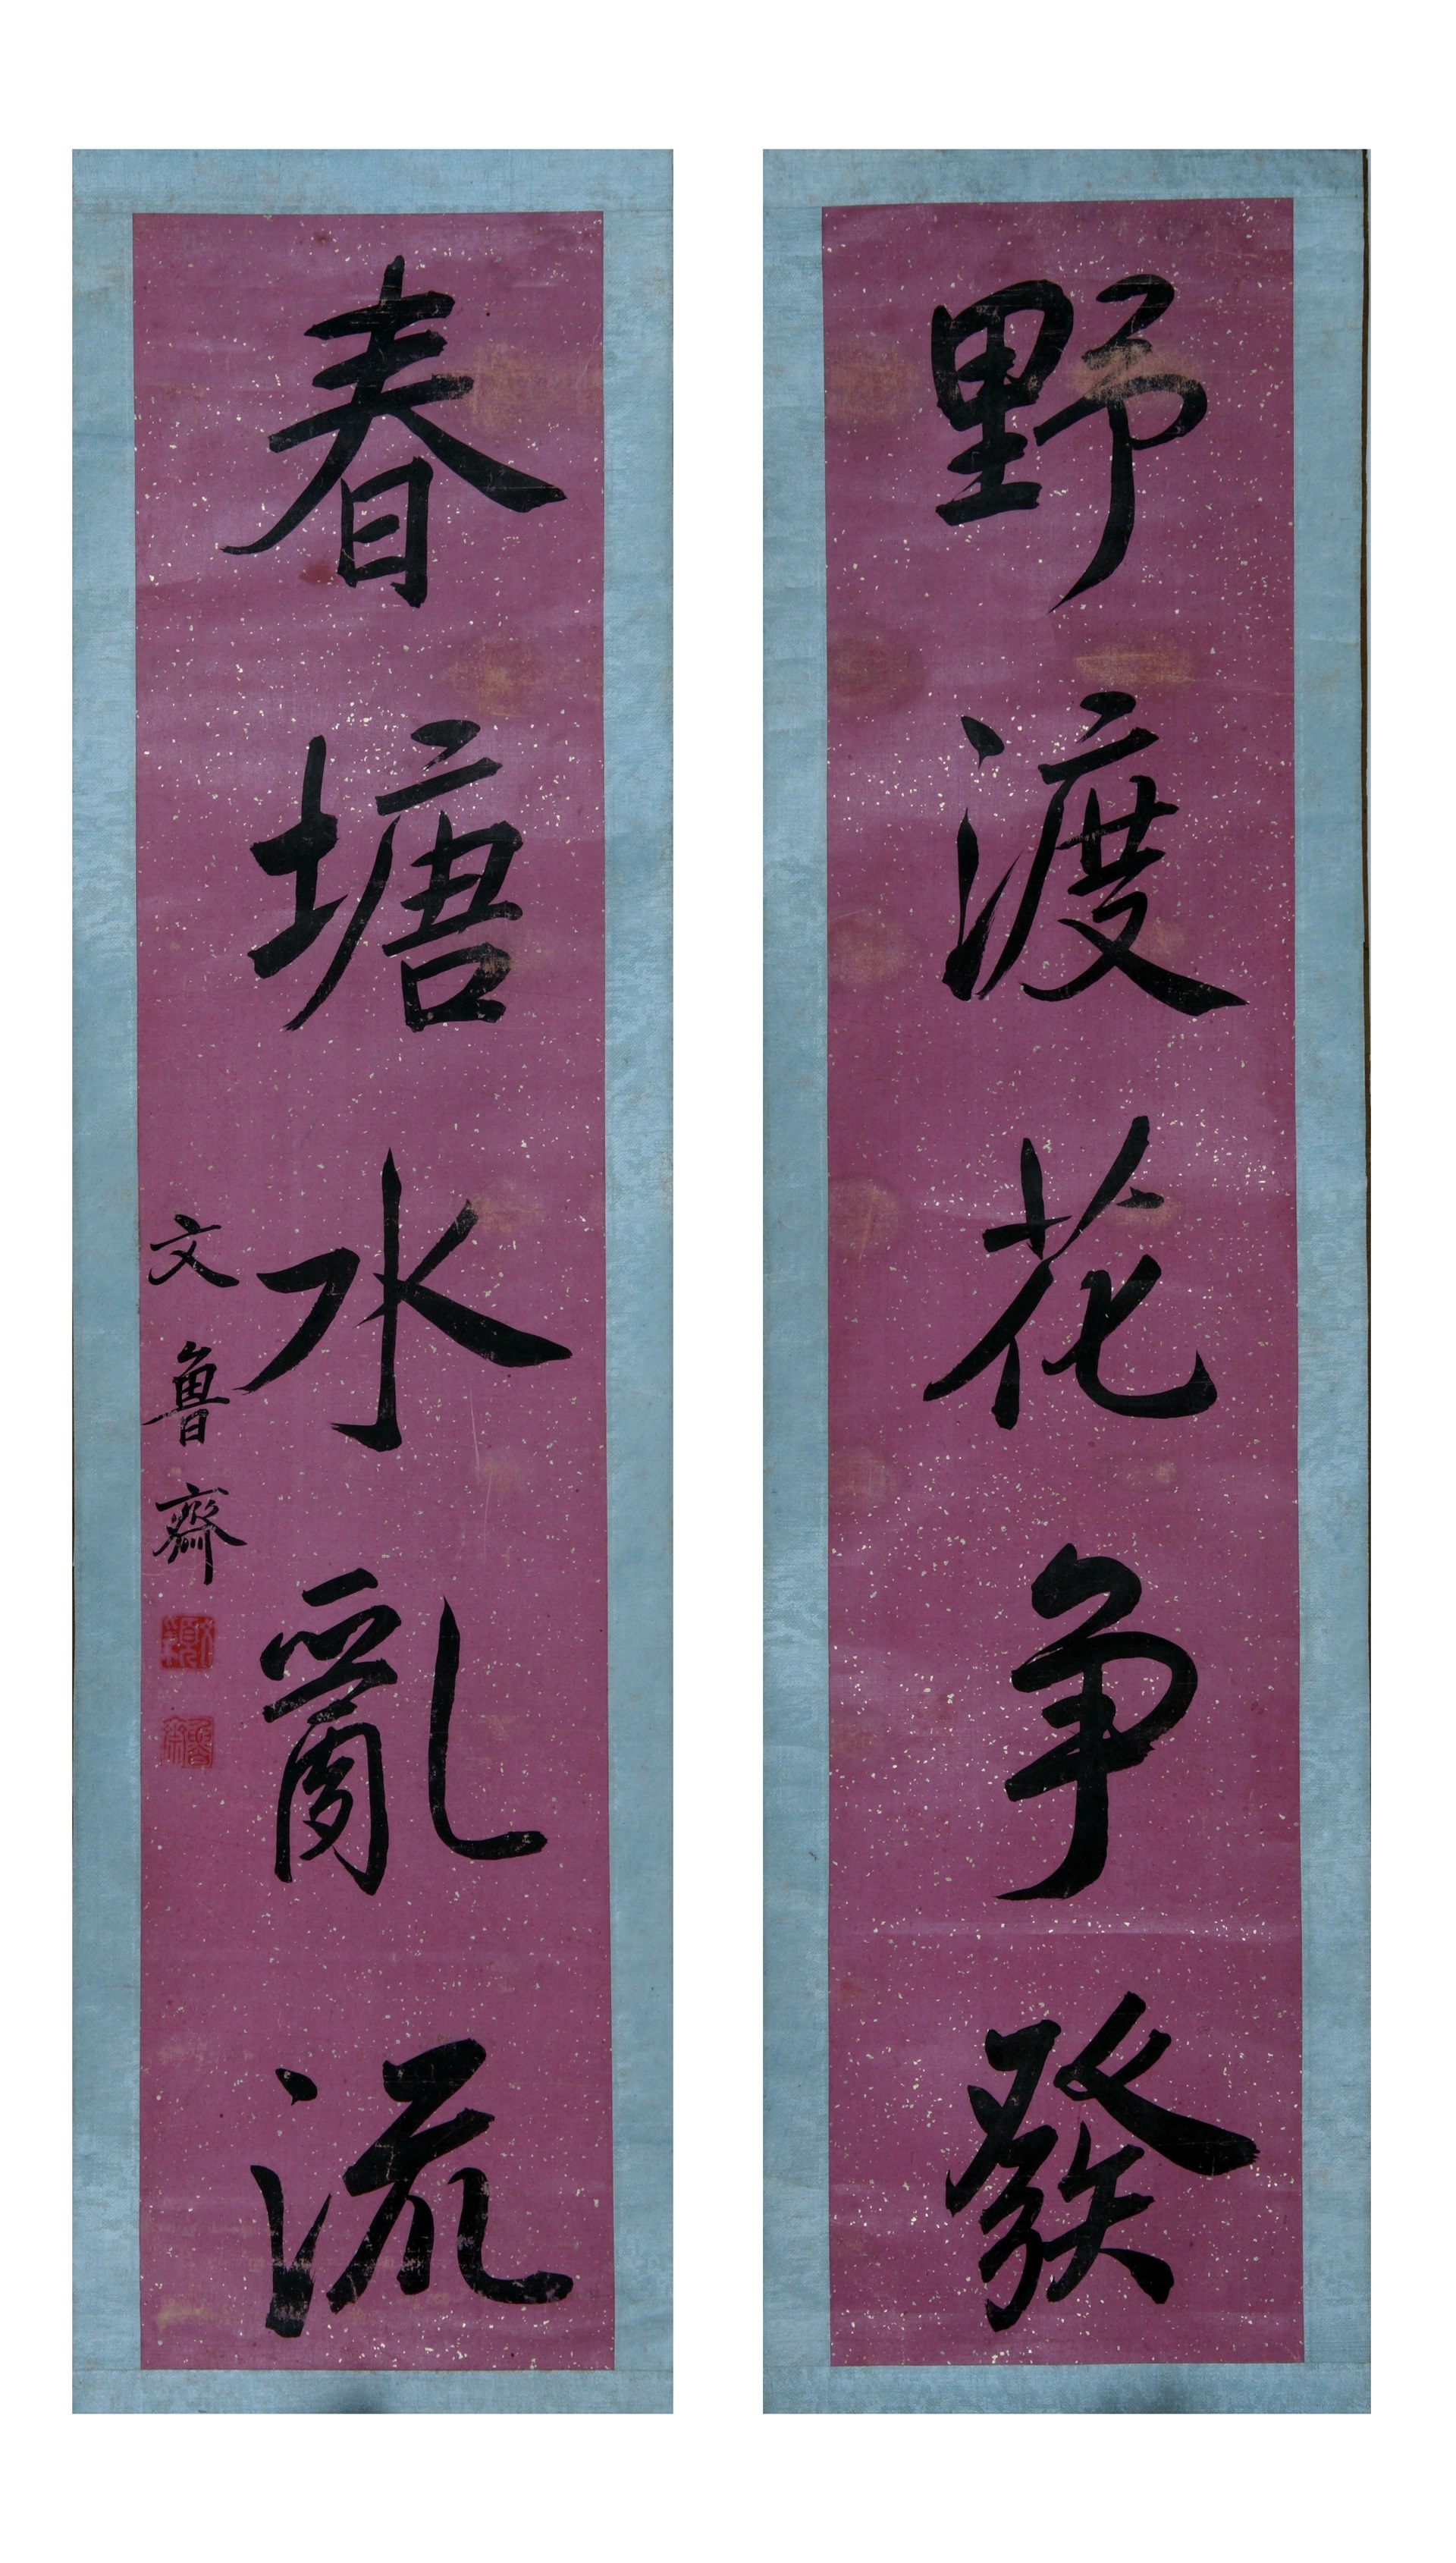 野渡花争發
春塘水亂流
文魯齋